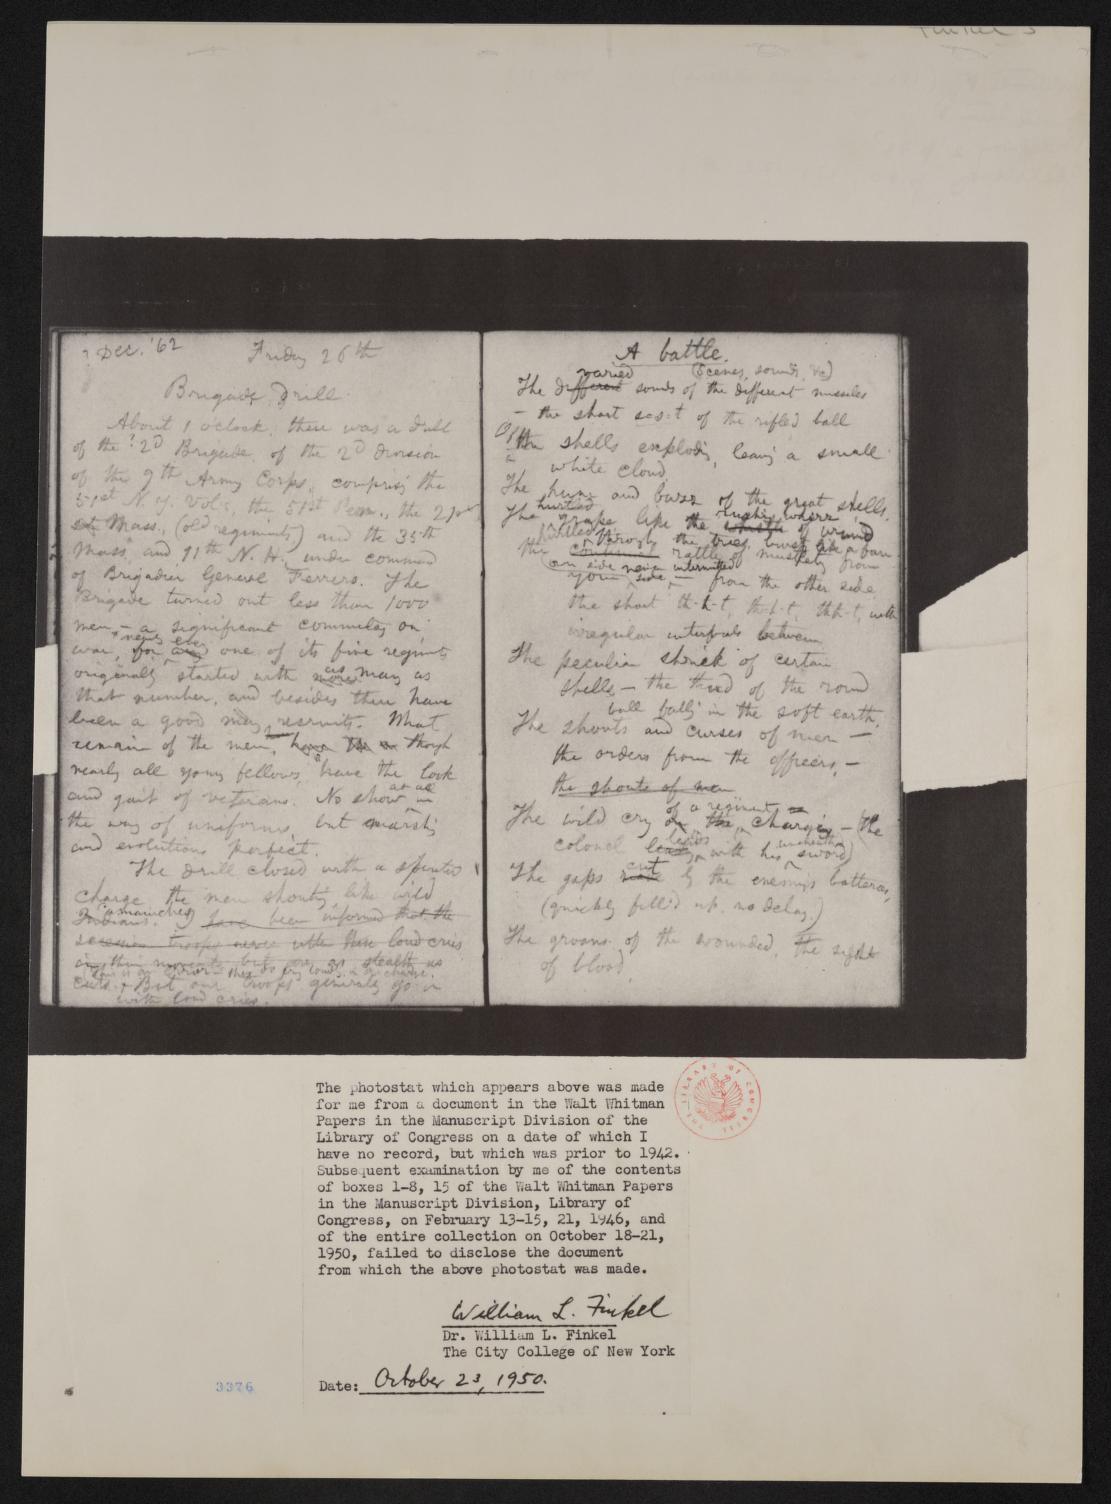 ? Dec. '62 Friday 26th
Brigade Drill.
About 1 o'clock, there was a drill
of the ? 2d Brigade, of the 2d division
of the 9th Army Corps, comprising the
51st N. Y. Vols., the 51st Penn., the 21st
Mass., (old regiments) and the 35th
Mass. and 11th N. H. under command
of Brigadier General Ferrero. The
Brigade turned out less than 1000
men, — a significant commentary on
war, for one of its five regiments
originally started with as many as
that number, and besides there have
been a good many recruits. What
remain of the men, though
nearly all young fellows, have the look
and gait of veterans. No show at all in
the way of uniforms, but marching
and evolutions perfect.
The drill closed with a spirited
charge, the men shouting like wild
Indians. I have been informed that the
secession troops never utter these loud cries
in their movements but are as stealthy as
(This is an error — they do cry loud in a charge.
cats. + But our troops generally go in
with loud cries.
A battle.
(Scenes, sounds, &c)
varied
The different sounds of the different missiles
— the short s-s-t of the rifled ball
Of the shells exploding, leaving a small
white cloud,
The hum and buzz of the great shells.
hurtled rushing whirr
The grape like the of wind
through the trees
rattle of musketry from
on side never intermitted
your side, — from the other side
the short th-h-t, th-h-t, th-h-t, with
irregular intervals between
The peculiar shriek of certain
shells — the thud of the round
ball falling in the soft earth,
The shouts and curses of men —
the orders from the officers, —
the shouts of men
of a regiment
The wild cry charging — (the
colonel leads with his unsheathed sword)
The gaps cut by the enemy's batteries,
(quickly fill'd up, no delay.)
The groans of the wounded, the sight
of blood
The photostat which appears above was made
for me from a document in the Walt Whitman
Papers in the Manuscript Division of the
Library of Congress on a date of which I
have no record, but which was prior to 1942.
Subsequent examination by me of the contents
of boxes 1-8, 15 of the Walt Whitman Papers
in the Manuscript Division, Library of
Congress, on February 13-15, 21, 1946, and
of the entire collection on October 18-21,
1950, failed to disclose the document
from which the above photostat was made.
THE LIBRARY OF CONGRESS
William L. Finkel
Dr. William L. Finkel
The City College of New York
Date: October 23, 1950.
3376